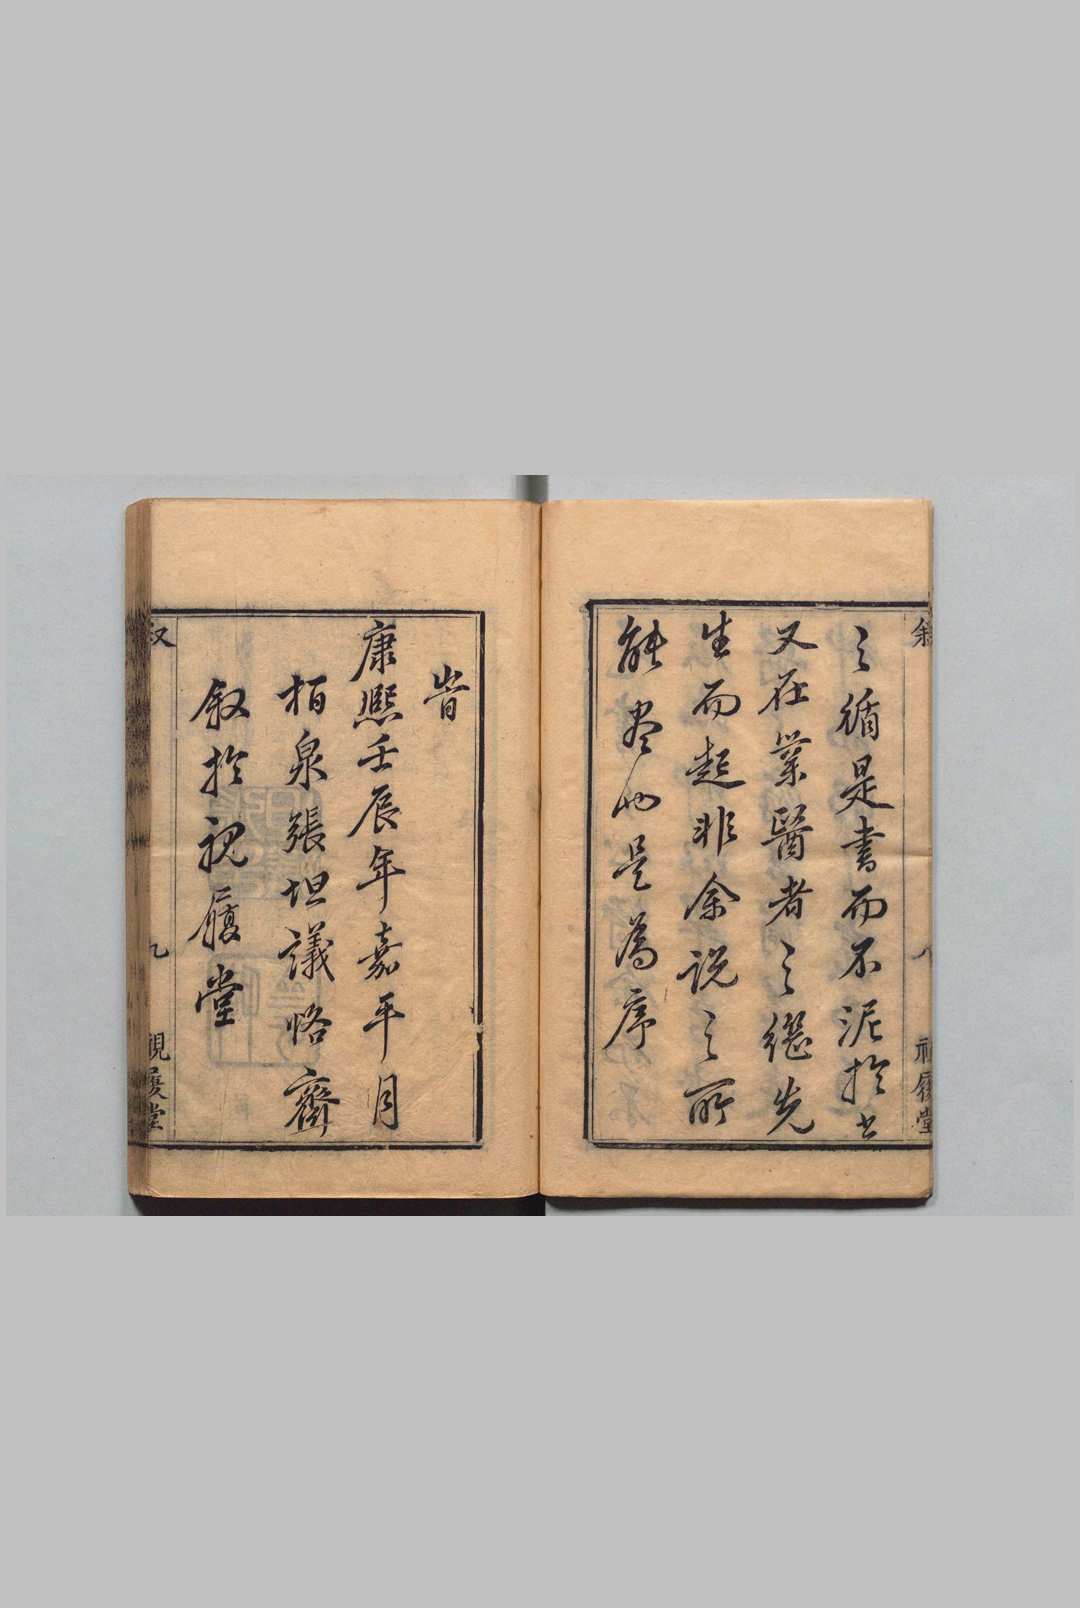 之循是書而不泥於古
又在業醫者之繼先
生而起非余説之所
能盡也是為序
叙 八 視履堂
旹
康熙壬辰年嘉平月
栢泉張坦議恪齋
叙於視履堂
叙 九 視履堂